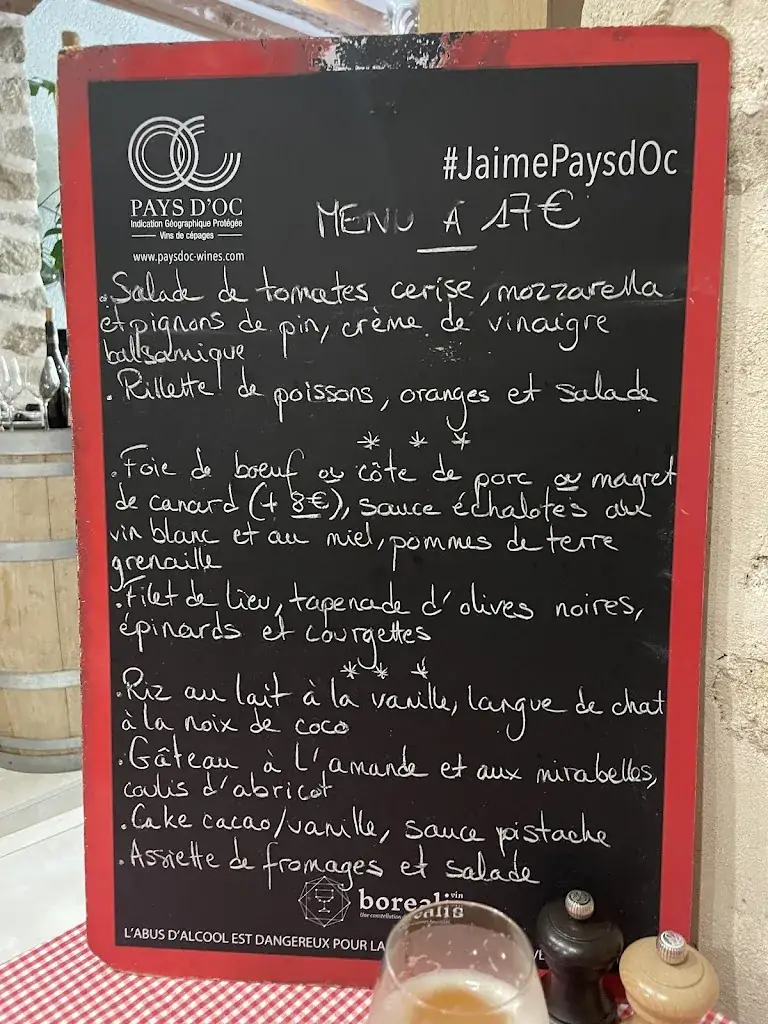 #JaimePaysdOc
PAYS D'OC
Indication Géographique Protégée
Vins de cépages
www.paysdoc-wines.com
MENU A 17€
. Salade de tomates cerise, mozzarella
et pignons de pin, crème de vinaigre
balsamique
. Rillette de poissons, oranges et salade
* * *
. Foie de boeuf ou côte de porc ou magret
de canard (+ 8€), sauce échalotes au
vin blanc et au miel, pommes de terre
grenaille
. Filet de lieu, tapenade d'olives noires,
épinards et courgettes
* * *
. Riz au lait à la vanille, langue de chat
à la noix de coco
. Gâteau à l'amande et aux mirabelles,
coulis d'abricot
. Cake cacao/vanille, sauce pistache
. Assiette de fromages et salade
borealis vin
Une constellation
L'ABUS D'ALCOOL EST DANGEREUX POUR LA